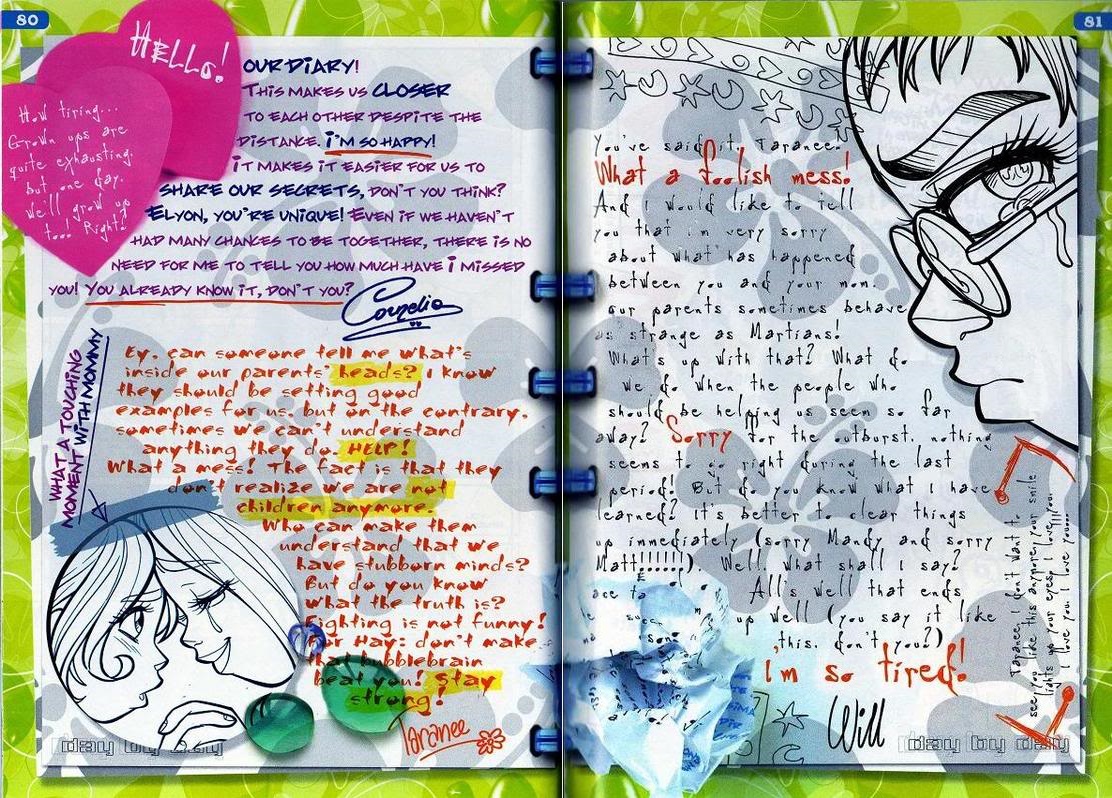 80
HELLO!
How tiring...
Grown ups are
quite exhausting.
but one day.
We'll grow up
too! Right?
OUR DIARY!
THIS MAKES US CLOSER
TO EACH OTHER DESPITE THE
DISTANCE. I'M SO HAPPY!
IT MAKES IT EASIER FOR US TO
SHARE OUR SECRETS, DON'T YOU THINK?
ELYON, YOU'RE UNIQUE! EVEN IF WE HAVEN'T
HAD MANY CHANCES TO BE TOGETHER, THERE IS NO
NEED FOR ME TO TELL YOU HOW MUCH HAVE I MISSED
YOU! YOU ALREADY KNOW IT, DON'T YOU?
Cornelia
WHAT A TOUCHING
MOMENT WITH MOMMY
Ey, can someone tell me what's
inside our parents' heads? I know
they should be setting good
examples for us, but on the contrary,
sometimes we can't understand
anything they do. HELP!
What a mess! The fact is that they
don't realize we are not
children anymore.
Who can make them
understand that we
have stubborn minds?
But do you know
what the truth is?
Fighting is not funny!
For Hay: don't make
that bubblebrain
beat you! Stay
strong!
Taranee
day by day
81
You've said it, Taranee.
What a foolish mess!
And I would like to tell
you that i'm very sorry
about what has happened
between you and your mom.
our parents sometimes behave
as strange as Martians!
What's up with that? What do
we do when the people who
should be helping us seem so far
away? Sorry for the outburst, nothing
seems to go right during the last
period! But do you know what I have
learned? It's better to clear things
up immediately (sorry Mandy and sorry
Matt!!!!!!!). Well, what shall I say?
All's well that ends
up well (you say it like
this, don't you?)
I'm so tired!
Will
Taranee, I don't want to
see you like this anymore, your smile
lights up your eyes, I love you,
I love you, I love you....
day by day